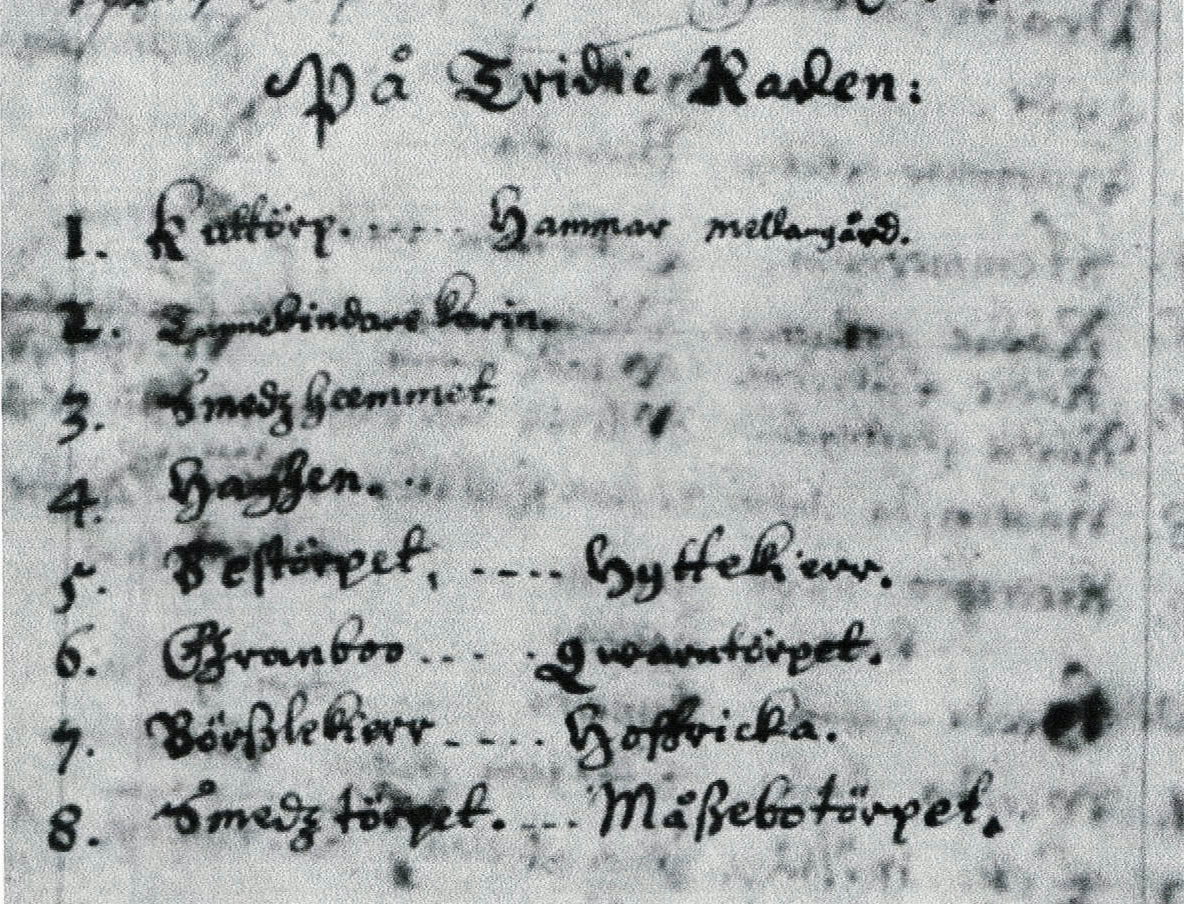 På Tridie Raden:
1. Kuttörp. ...... Hammar mellangård.
2. Tynnebindare Karin.
3. Smedz heemmet.
4. Haghen. ..
5. Bestörpet, .... Hyttekierr.
6. Granboo ... . Qwarntörpet.
7. Börßlekierr .... Hoffricka.
8. Smedz törpet. .... Måßebotörpet.